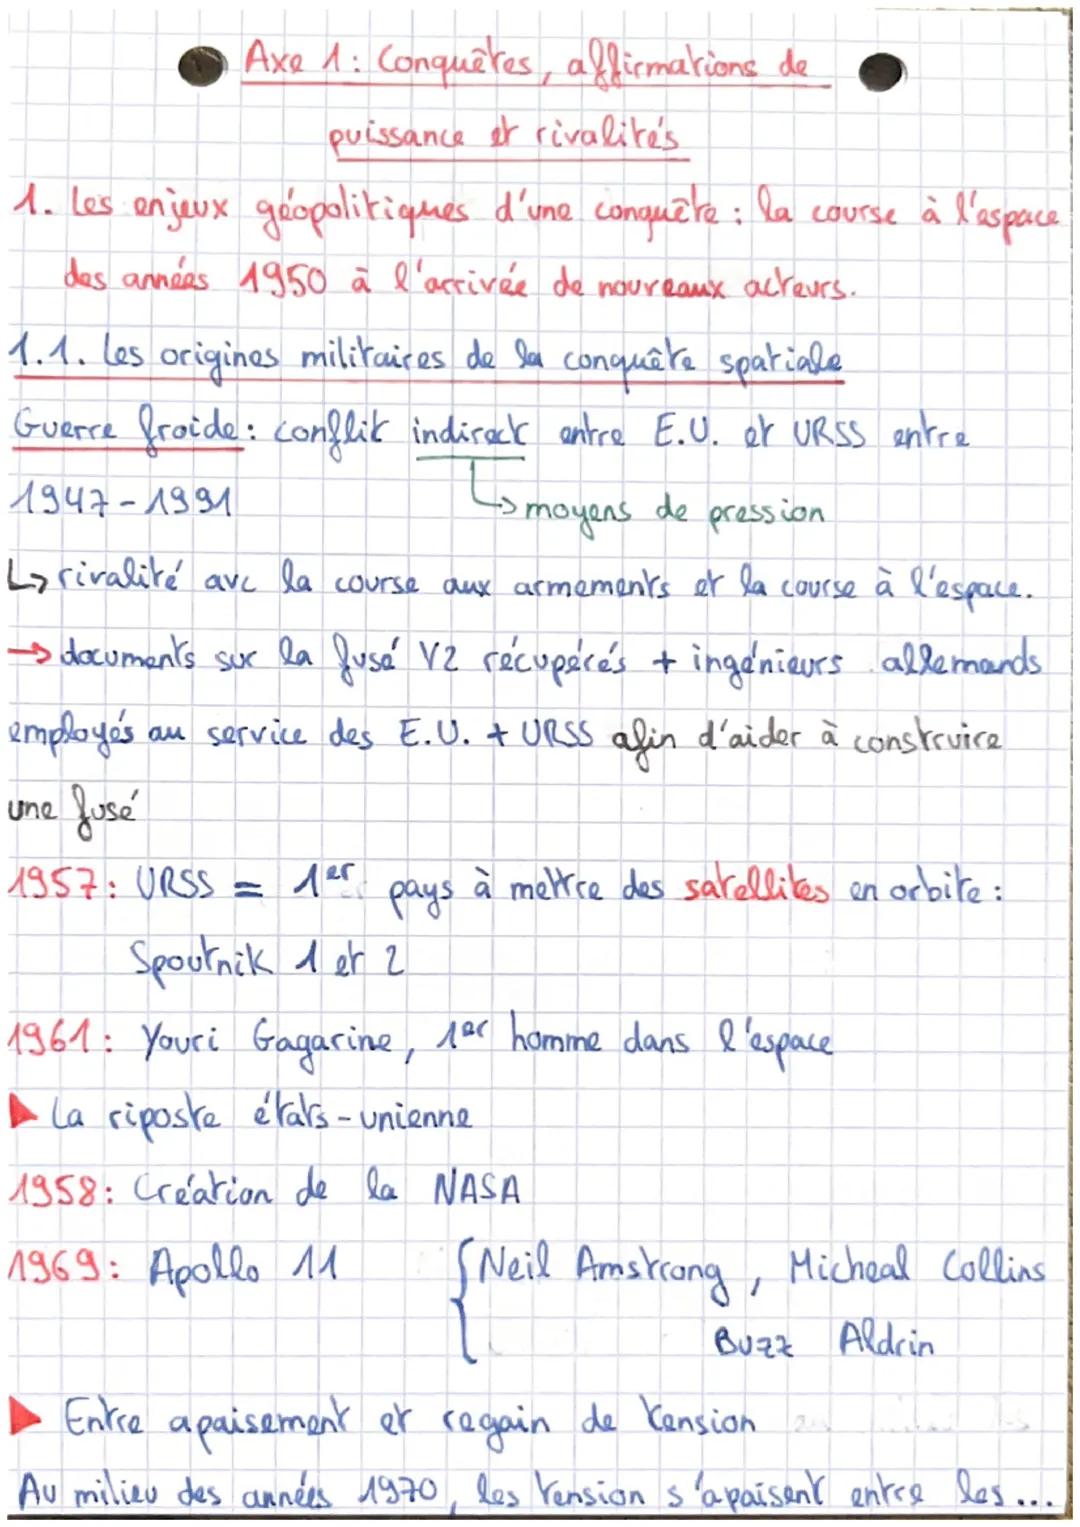 Axe 1: Conquêtes, affirmations de
puissance et rivalités
1. Les enjeux géopolitiques d'une conquête : la course à l'espace
des années 1950 à l'arrivée de nouveaux acteurs.
1.1. Les origines militaires de la conquête spatiale
Guerre froide : conflit indirect entre E.U. et URSS entre
1947-1991 ↳ moyens de pression
↳ rivalité avc la course aux armements et la course à l'espace.
→ documents sur la fusé V2 récupérés + ingénieurs allemands
employés au service des E.U. + URSS afin d'aider à construire
une fusé
1957: URSS = 1er pays à mettre des satellites en orbite :
Spoutnik 1 et 2
1961: Youri Gagarine, 1er homme dans l'espace
▶ La riposte états-unienne
1958: Création de la NASA
1969: Apollo 11 { Neil Amstrong, Micheal Collins
Buzz Aldrin
▶ Entre apaisement et regain de tension
Au milieu des années 1970, les tension s'apaisent entre les...